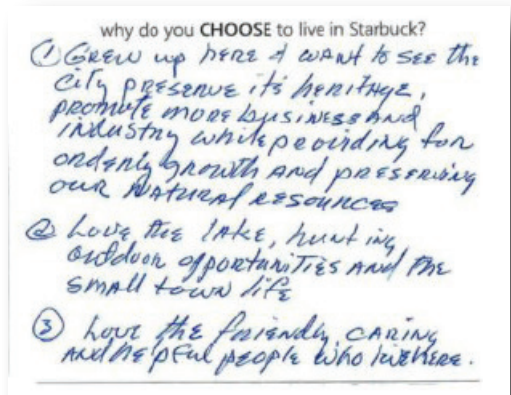 why do you CHOOSE to live in Starbuck?
① Grew up here & want to see the
city preserve its heritage,
promote more business and
industry while providing for
orderly growth and preserving
our natural resources
② Love the lake, hunting,
outdoor opportunities and the
small town life
③ Love the friendly, caring
and helpful people who live here.